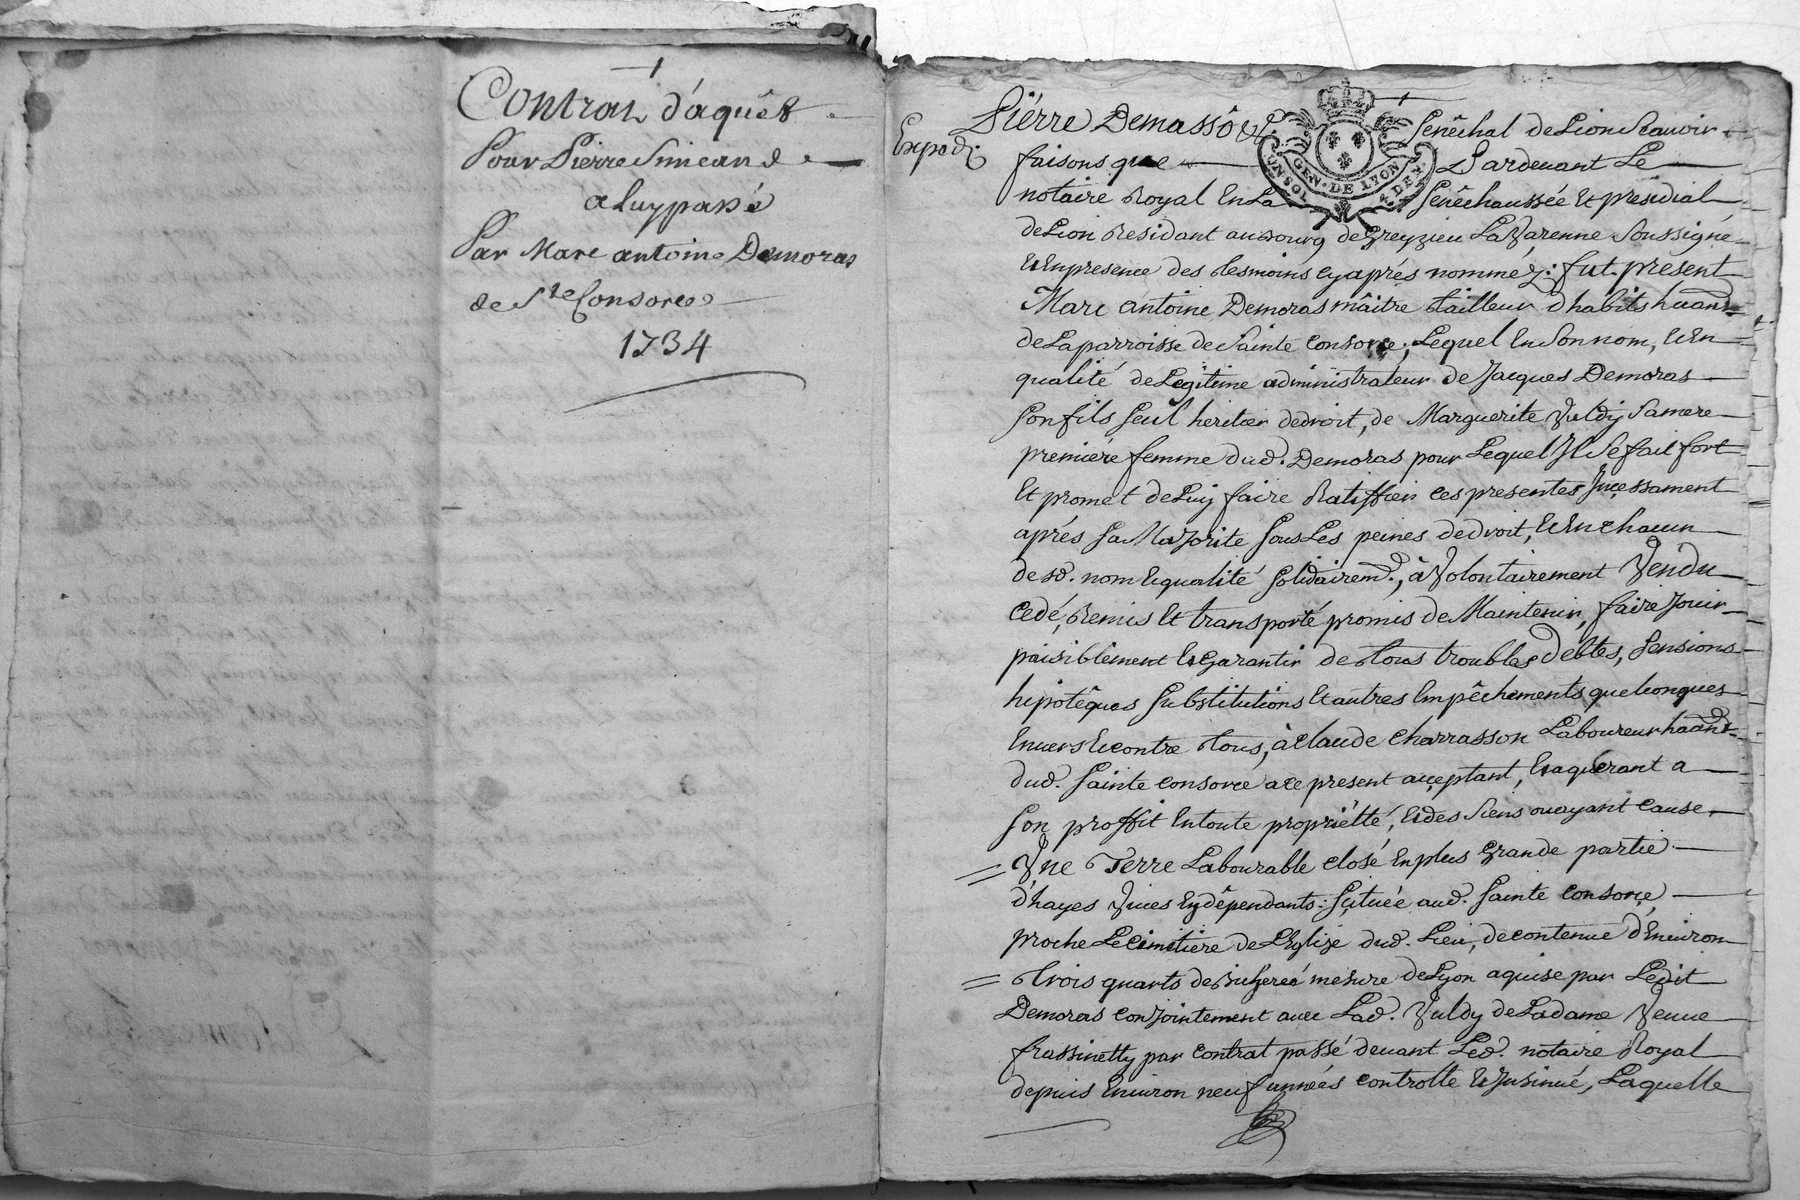 Contrat d'aquêt
Pour Pierre Simeand
a luy passé
Par Marc antoine Demoras
de Ste Consorce
1734
Expedié
Pierre Demasso Senêchal de Lion Scauoir
faisons que Pardeuant Le
notaire Royal En La Senêchaussée Et presidial
de Lion Residant au Bourg de Greyzieu La Varenne Soussigné
Et En presence des tesmoins cy aprés nommez: fut présent
Marc antoine Demoras mâitre tailleur d'habits haand
de La parroisse de Sainte Consorce, Lequel En Son nom, Et En
qualité de Legitime administrateur de Jacques Demoras
Son fils Seul heritier de droit, de Marguerite Vuldy Sa mere
premiére femme dud. Demoras pour Lequel Il Se fait fort
Et promet de Luy faire Ratiffier ces presentes Incessament
aprés Sa Majorité Sous Les peines de droit, Et En chacun
desd. nom Et qualité Solidairemt., à Volontairement Vendu
Cedé, Remis Et transporté promis de Maintenir, faire Jouir
paisiblement Et Garantir de tous troubles Debtes, Pensions
hipotêques Substitutions Et autres Empêchements quelconques
Enuers Et contre tous, à Claude Charrasson Laboureur haand
dud. Sainte Consorce a ce present acceptant, Et aquérant a
Son proffit En toute propriétté, Et des Siens ou ayant Cause,
Vne Terre Labourable closé En plus Grande partie
d'hayes Viues En dépendants: Scituée aud. Sainte Consorce,
proche Le Cimitiére de L'Eglize dud. Lieu, de contenue d'Enuiron
trois quarts de Bicherée mesure de Lyon aquise par Ledit
Demoras conjointement auec Lad. Vuldy de La dame Veuue
frassinetty par Contrat passé deuant Led. notaire Royal
depuis Enuiron neuf années controllé Et Insinué, Laquelle